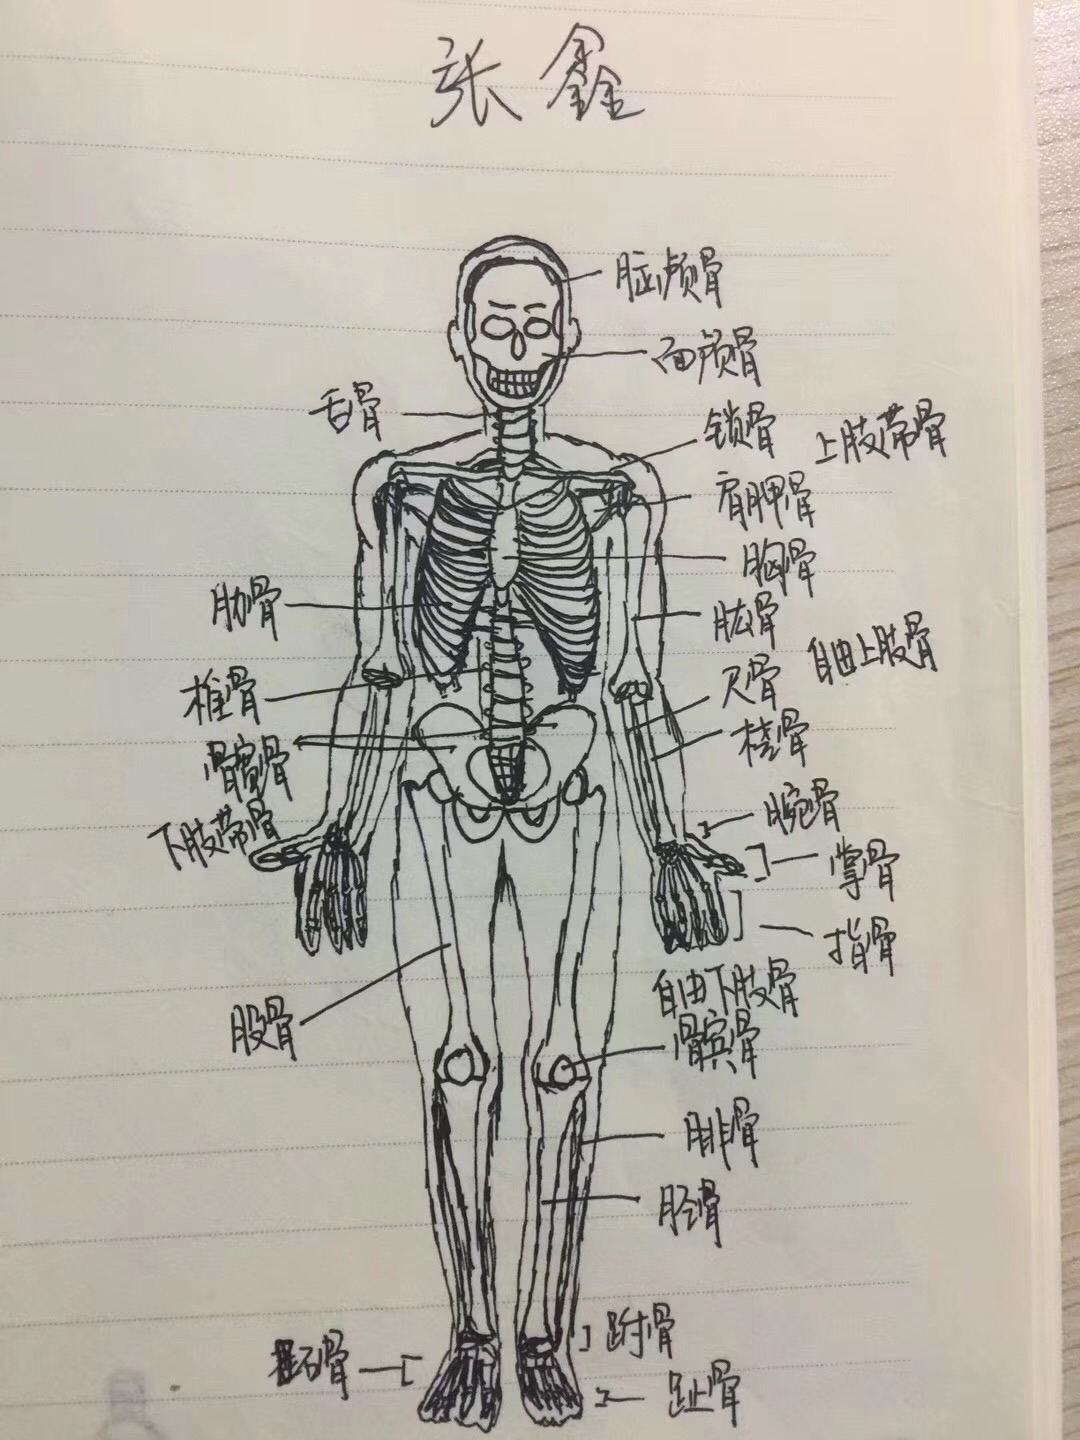 张鑫
脑颅骨
面颅骨
舌骨
锁骨
上肢带骨
肩胛骨
胸骨
肋骨
肱骨
自由上肢骨
椎骨
尺骨
桡骨
髋骨
下肢带骨
腕骨
掌骨
指骨
自由下肢骨
股骨
髌骨
腓骨
胫骨
跗骨
跖骨
趾骨